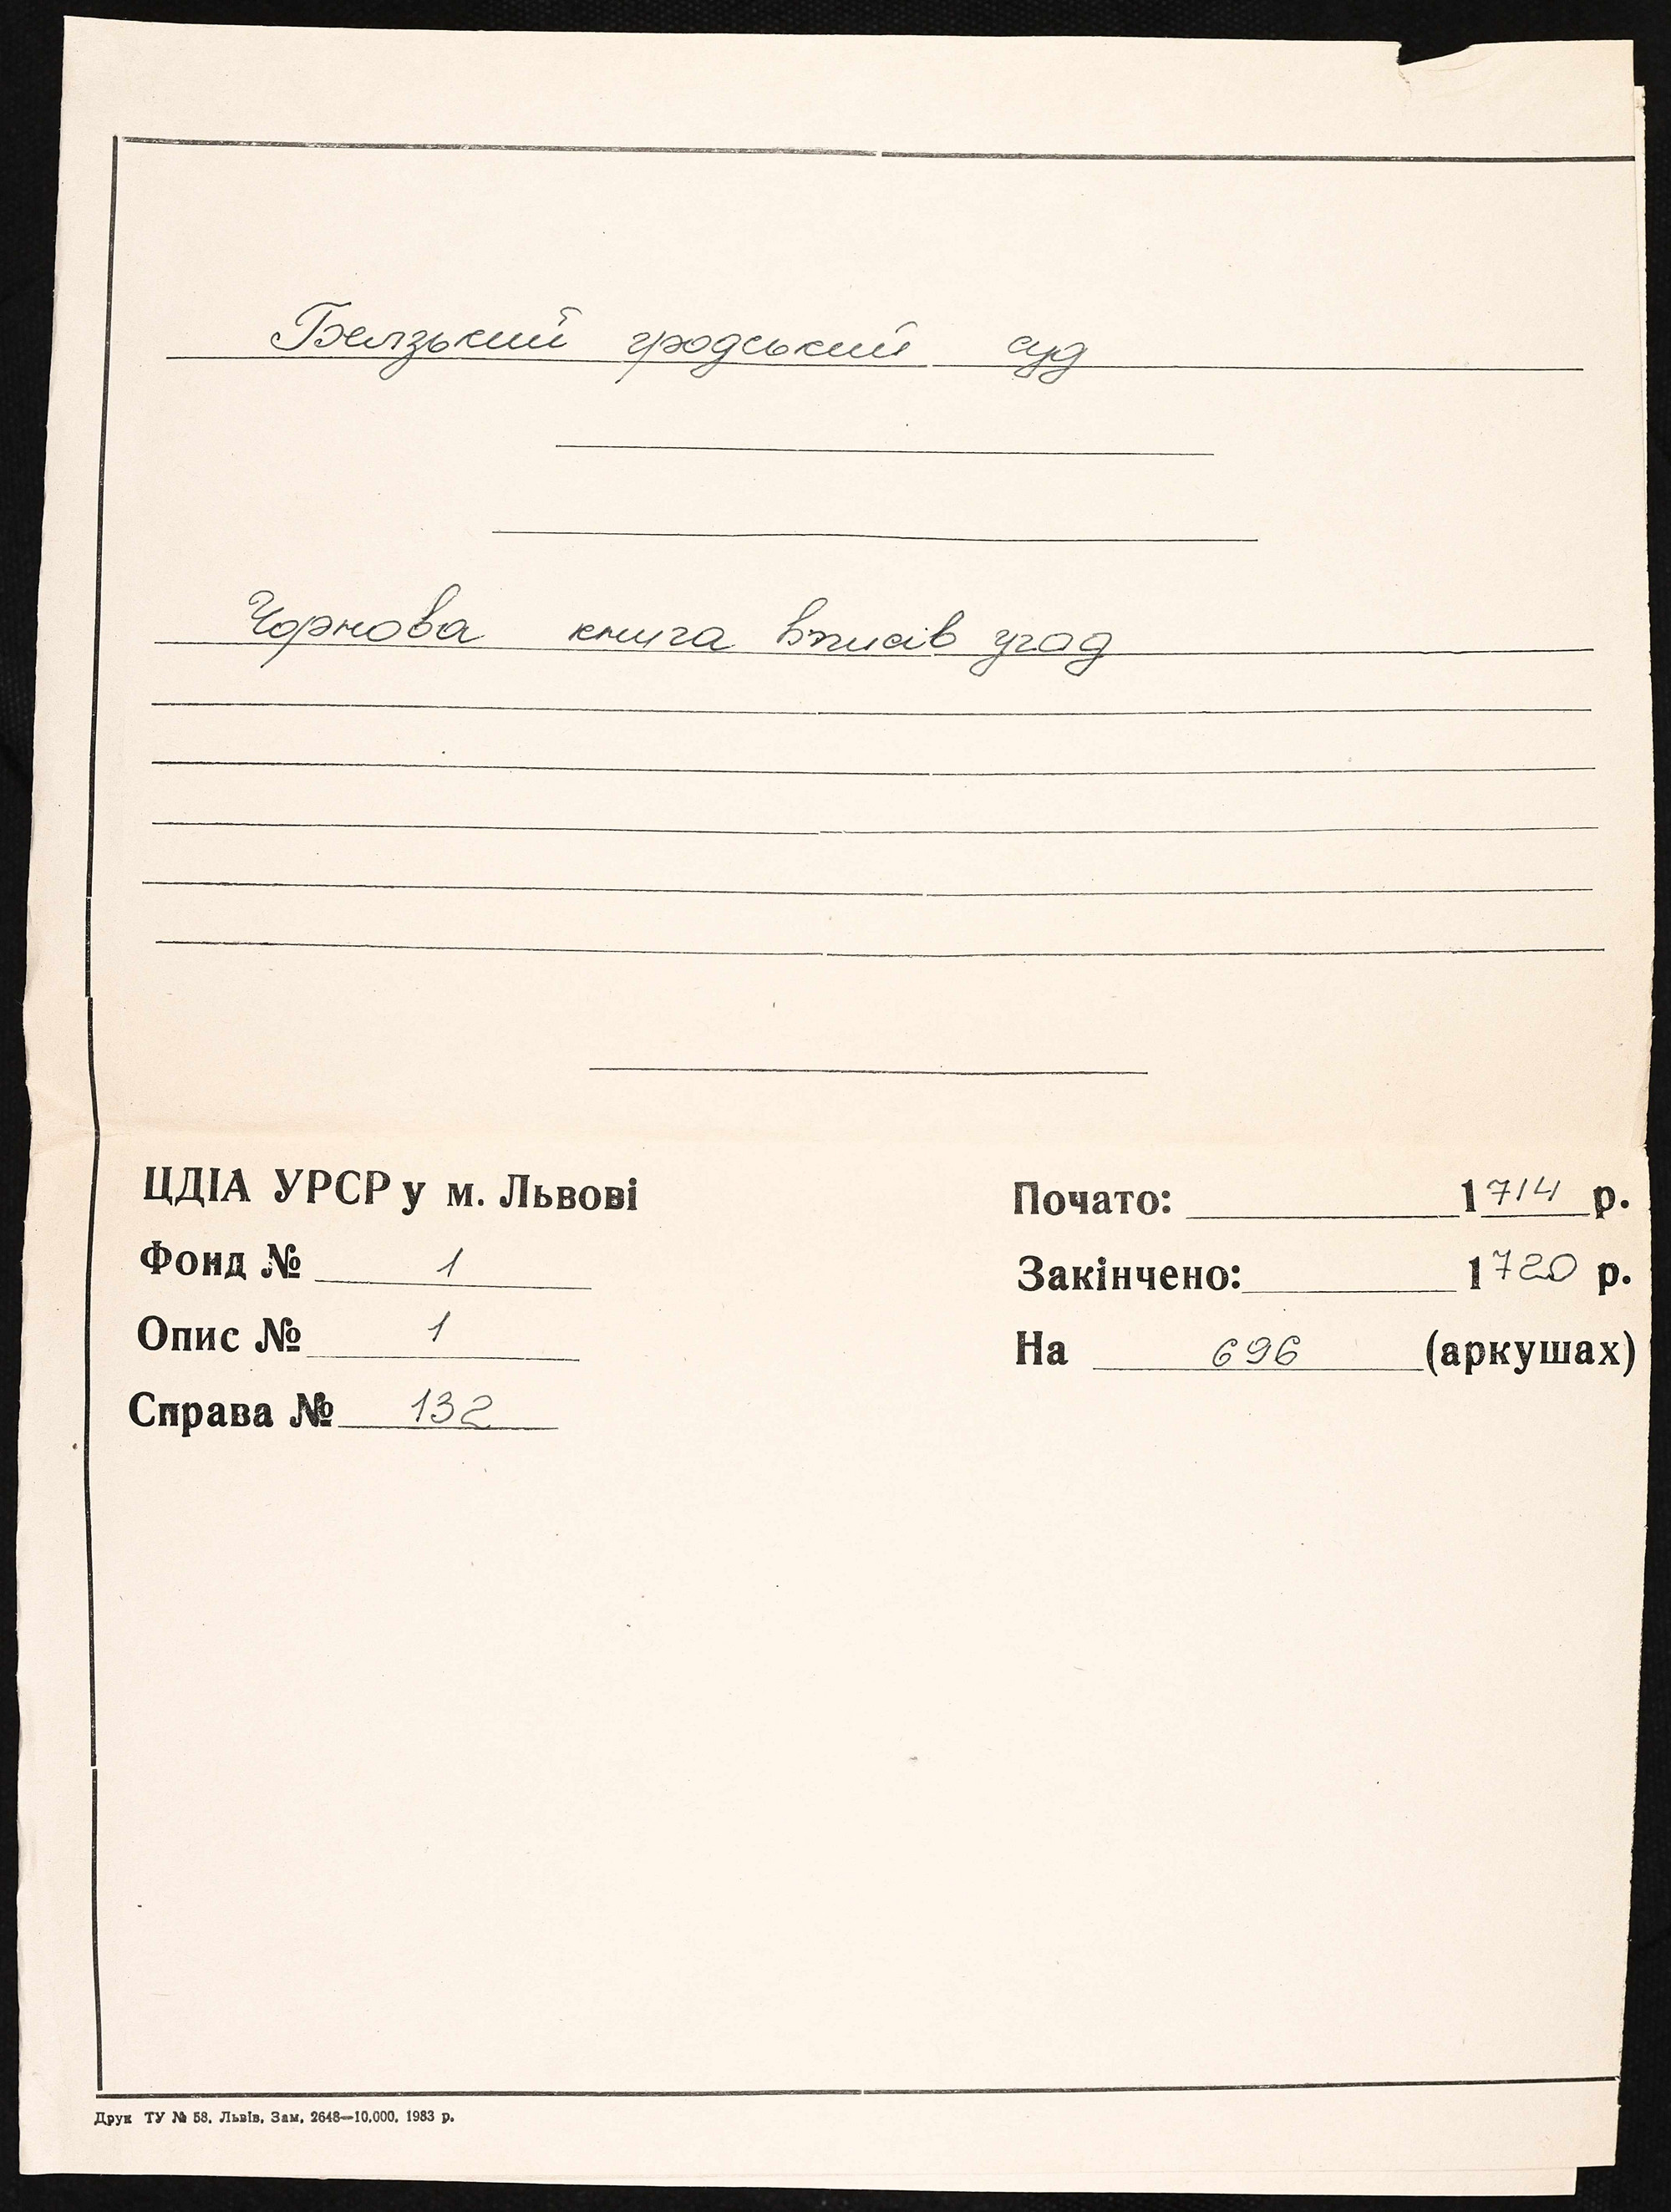 Белзький гродський суд
Чорнова книга вписів угод
ЦДІА УРСР у м. Львові
Почато: 1714 р.
Фонд № 1
Закінчено: 1720 р.
Опис № 1
На 696 (аркушах)
Справа № 132
Друк ТУ № 58. Львів. Зам. 2648—10.000. 1983 р.